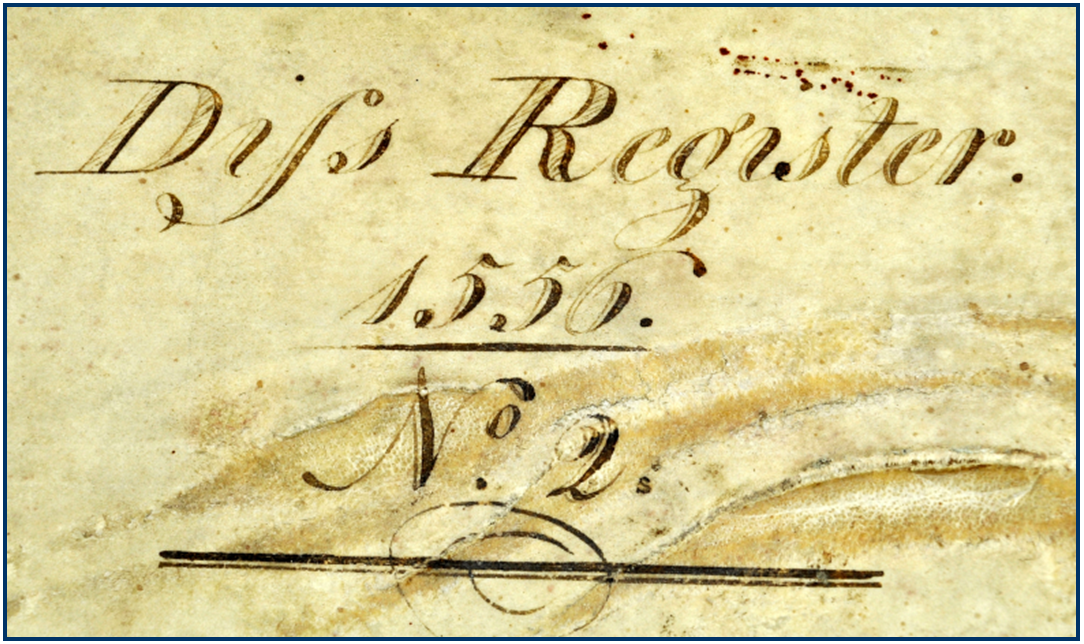 Diſs Register.
1556.
Nº. 2.